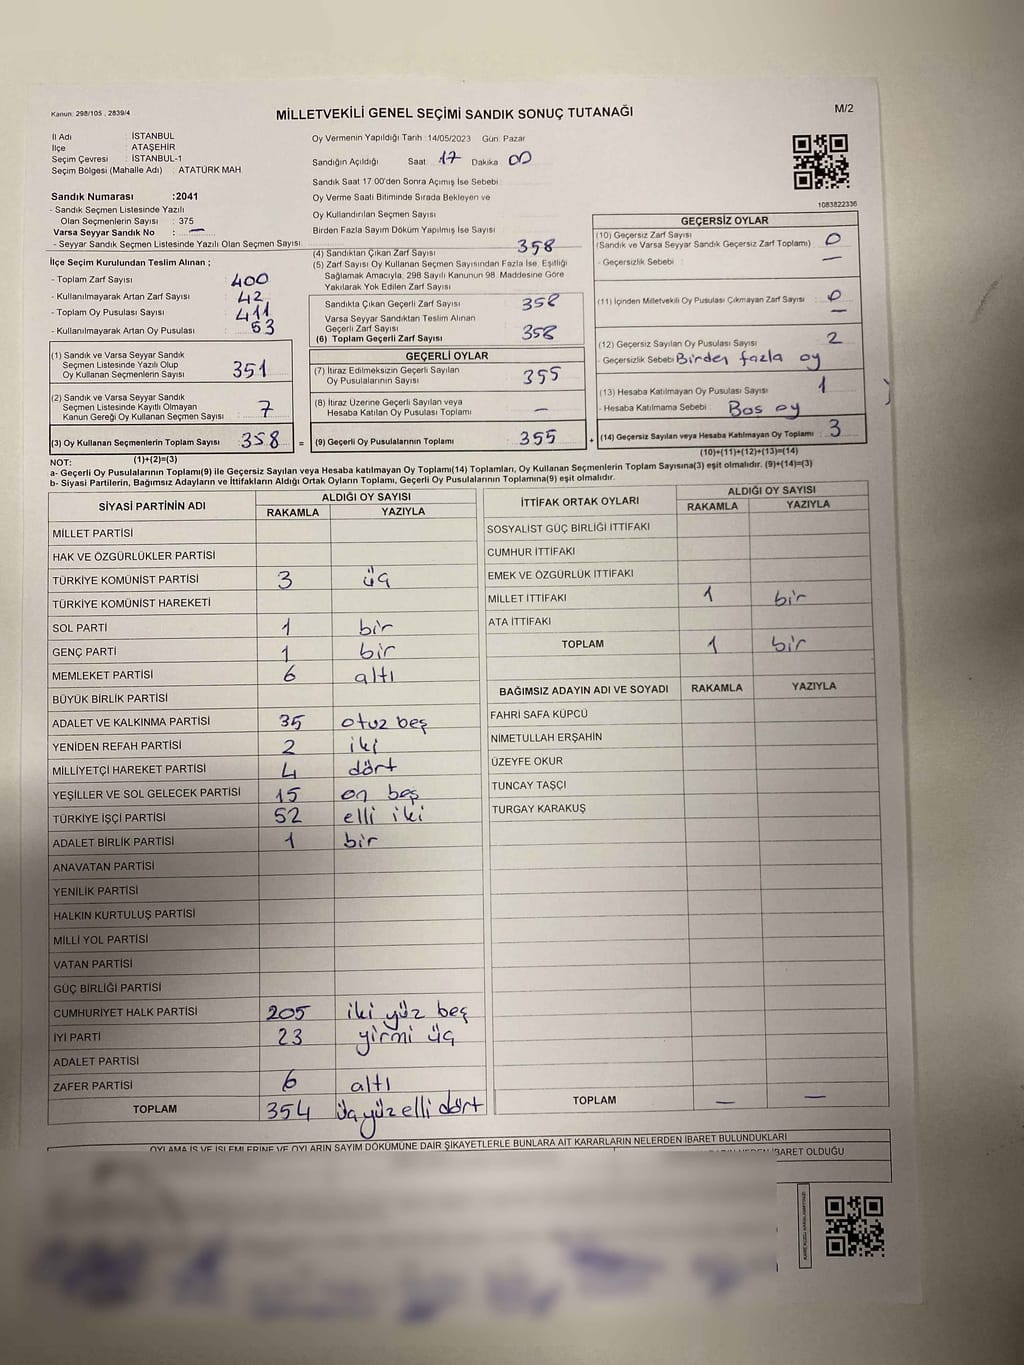 Kanun: 298/105 , 2839/4
MİLLETVEKİLİ GENEL SEÇİMİ SANDIK SONUÇ TUTANAĞI
M/2
İl Adı : İSTANBUL
İlçe : ATAŞEHİR
Seçim Çevresi : İSTANBUL-1
Seçim Bölgesi (Mahalle Adı) : ATATÜRK MAH
Sandık Numarası :2041
- Sandık Seçmen Listesinde Yazılı
Olan Seçmenlerin Sayısı : 375
Varsa Seyyar Sandık No : —
- Seyyar Sandık Seçmen Listesinde Yazılı Olan Seçmen Sayısı
İlçe Seçim Kurulundan Teslim Alınan ;
- Toplam Zarf Sayısı 400
- Kullanılmayarak Artan Zarf Sayısı 42
- Toplam Oy Pusulası Sayısı 411
- Kullanılmayarak Artan Oy Pusulası 53
(1) Sandık ve Varsa Seyyar Sandık
Seçmen Listesinde Yazılı Olup
Oy Kullanan Seçmenlerin Sayısı 351
(2) Sandık ve Varsa Seyyar Sandık
Seçmen Listesinde Kayıtlı Olmayan
Kanun Gereği Oy Kullanan Seçmen Sayısı 7
(3) Oy Kullanan Seçmenlerin Toplam Sayısı 358 =
(1)+(2)=(3)
Oy Vermenin Yapıldığı Tarih :14/05/2023 Gün: Pazar
Sandığın Açıldığı Saat 17 Dakika 00
Sandık Saat 17:00'den Sonra Açımış İse Sebebi
Oy Verme Saati Bitiminde Sırada Bekleyen ve
Oy Kullandırılan Seçmen Sayısı
Birden Fazla Sayım Döküm Yapılmış İse Sayısı
(4) Sandıktan Çıkan Zarf Sayısı 358
(5) Zarf Sayısı Oy Kullanan Seçmen Sayısından Fazla İse, Eşitliği
Sağlamak Amacıyla, 298 Sayılı Kanunun 98. Maddesine Göre
Yakılarak Yok Edilen Zarf Sayısı
Sandıkta Çıkan Geçerli Zarf Sayısı 358
Varsa Seyyar Sandıktan Teslim Alınan
Geçerli Zarf Sayısı
(6) Toplam Geçerli Zarf Sayısı 358
GEÇERLİ OYLAR
(7) İtiraz Edilmeksizin Geçerli Sayılan
Oy Pusulalarının Sayısı 355
(8) İtiraz Üzerine Geçerli Sayılan veya
Hesaba Katılan Oy Pusulası Toplamı —
(9) Geçerli Oy Pusulalarının Toplamı 355 +
1083822336
GEÇERSİZ OYLAR
(10) Geçersiz Zarf Sayısı 0
(Sandık ve Varsa Seyyar Sandık Geçersiz Zarf Toplamı)
- Geçersizlik Sebebi : —
(11) İçinden Milletvekili Oy Pusulası Çıkmayan Zarf Sayısı : 0
—
(12) Geçersiz Sayılan Oy Pusulası Sayısı 2
- Geçersizlik Sebebi Birden fazla oy
(13) Hesaba Katılmayan Oy Pusulası Sayısı 1
- Hesaba Katılmama Sebebi : Bos oy
(14) Geçersiz Sayılan veya Hesaba Katılmayan Oy Toplamı : 3
(10)+(11)+(12)+(13)=(14)
NOT:
a- Geçerli Oy Pusulalarının Toplamı(9) ile Geçersiz Sayılan veya Hesaba katılmayan Oy Toplamı(14) Toplamları, Oy Kullanan Seçmenlerin Toplam Sayısına(3) eşit olmalıdır. (9)+(14)=(3)
b- Siyasi Partilerin, Bağımsız Adayların ve İttifakların Aldığı Ortak Oyların Toplamı, Geçerli Oy Pusulalarının Toplamına(9) eşit olmalıdır.
SİYASİ PARTİNİN ADI ALDIĞI OY SAYISI
RAKAMLA YAZIYLA
MİLLET PARTİSİ
HAK VE ÖZGÜRLÜKLER PARTİSİ
TÜRKİYE KOMÜNİST PARTİSİ 3 üç
TÜRKİYE KOMÜNİST HAREKETİ
SOL PARTİ 1 bir
GENÇ PARTİ 1 bir
MEMLEKET PARTİSİ 6 altı
BÜYÜK BİRLİK PARTİSİ
ADALET VE KALKINMA PARTİSİ 35 otuz beş
YENİDEN REFAH PARTİSİ 2 iki
MİLLİYETÇİ HAREKET PARTİSİ 4 dört
YEŞİLLER VE SOL GELECEK PARTİSİ 15 on beş
TÜRKİYE İŞÇİ PARTİSİ 52 elli iki
ADALET BİRLİK PARTİSİ 1 bir
ANAVATAN PARTİSİ
YENİLİK PARTİSİ
HALKIN KURTULUŞ PARTİSİ
MİLLİ YOL PARTİSİ
VATAN PARTİSİ
GÜÇ BİRLİĞİ PARTİSİ
CUMHURİYET HALK PARTİSİ 205 iki yüz beş
İYİ PARTİ 23 yirmi üç
ADALET PARTİSİ
ZAFER PARTİSİ 6 altı
TOPLAM 354 üç yüz elli dört
İTTİFAK ORTAK OYLARI ALDIĞI OY SAYISI
RAKAMLA YAZIYLA
SOSYALİST GÜÇ BİRLİĞİ İTTİFAKI
CUMHUR İTTİFAKI
EMEK VE ÖZGÜRLÜK İTTİFAKI
MİLLET İTTİFAKI 1 bir
ATA İTTİFAKI
TOPLAM 1 bir
BAĞIMSIZ ADAYIN ADI VE SOYADI RAKAMLA YAZIYLA
FAHRİ SAFA KÜPCÜ
NİMETULLAH ERŞAHİN
ÜZEYFE OKUR
TUNCAY TAŞÇI
TURGAY KARAKUŞ
TOPLAM — —
OYLAMA İŞ VE İŞLEMLERİNE VE OYLARIN SAYIM DÖKÜMÜNE DAİR ŞİKAYETLERLE BUNLARA AİT KARARLARIN NELERDEN İBARET BULUNDUKLARI
İBARET OLDUĞU